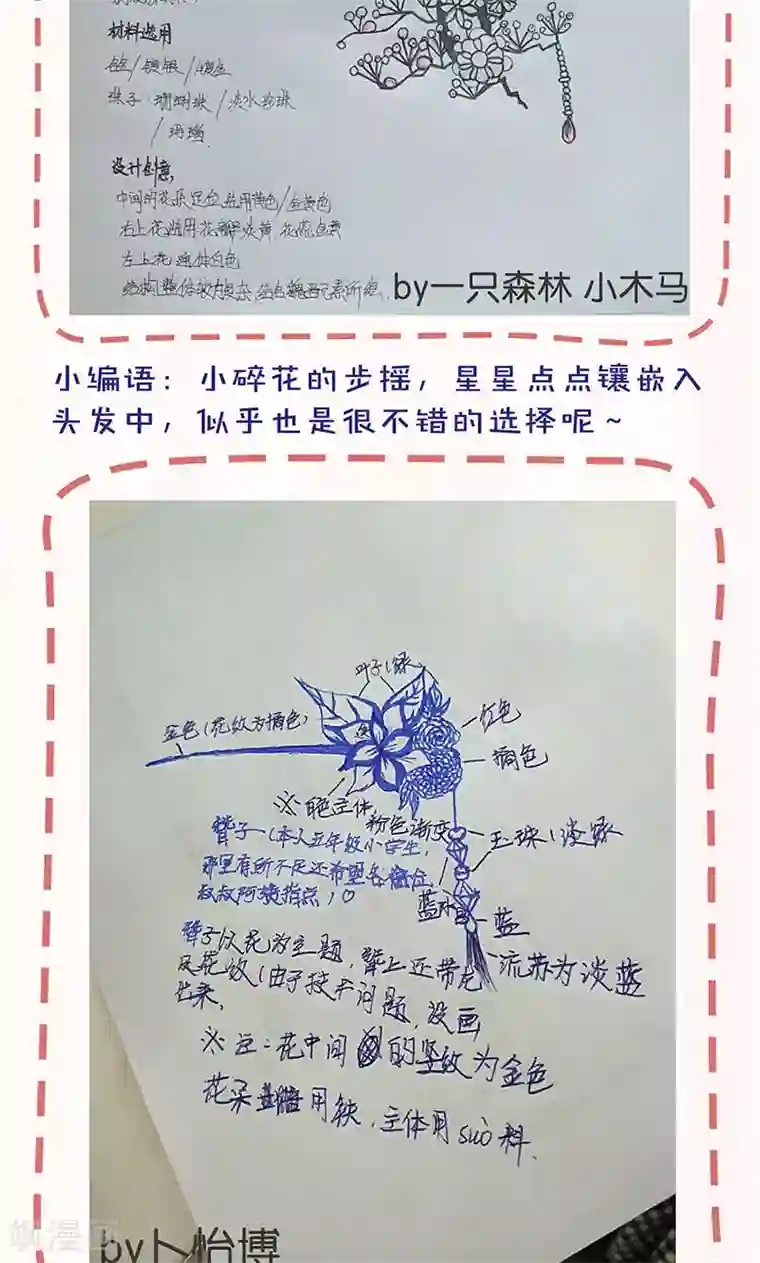 材料选用
珠子：珊瑚珠/淡水珍珠
/玛瑙
设计创意
中间的花朵定位选用黄色/金黄色
左上花 通体白色
by一只森林 小木马
小编语：小碎花的步摇，星星点点镶嵌入
头发中，似乎也是很不错的选择呢~
叶子(绿
金色(花纹为橘色)
红色
橘色
※ 白色立体
粉色渐变
玉珠(淡绿
簪子—(本人五年级小学生,
那里有所不足还希望各位
叔叔阿姨指点!♡
蓝
簪子以花为主题,
流苏为淡蓝
簪上还带龙
及花纹(由于技术问题,没画
出来,
※注:花中间的竖纹为金色
花朵 用铁,立体用suò料.
by卜怡博